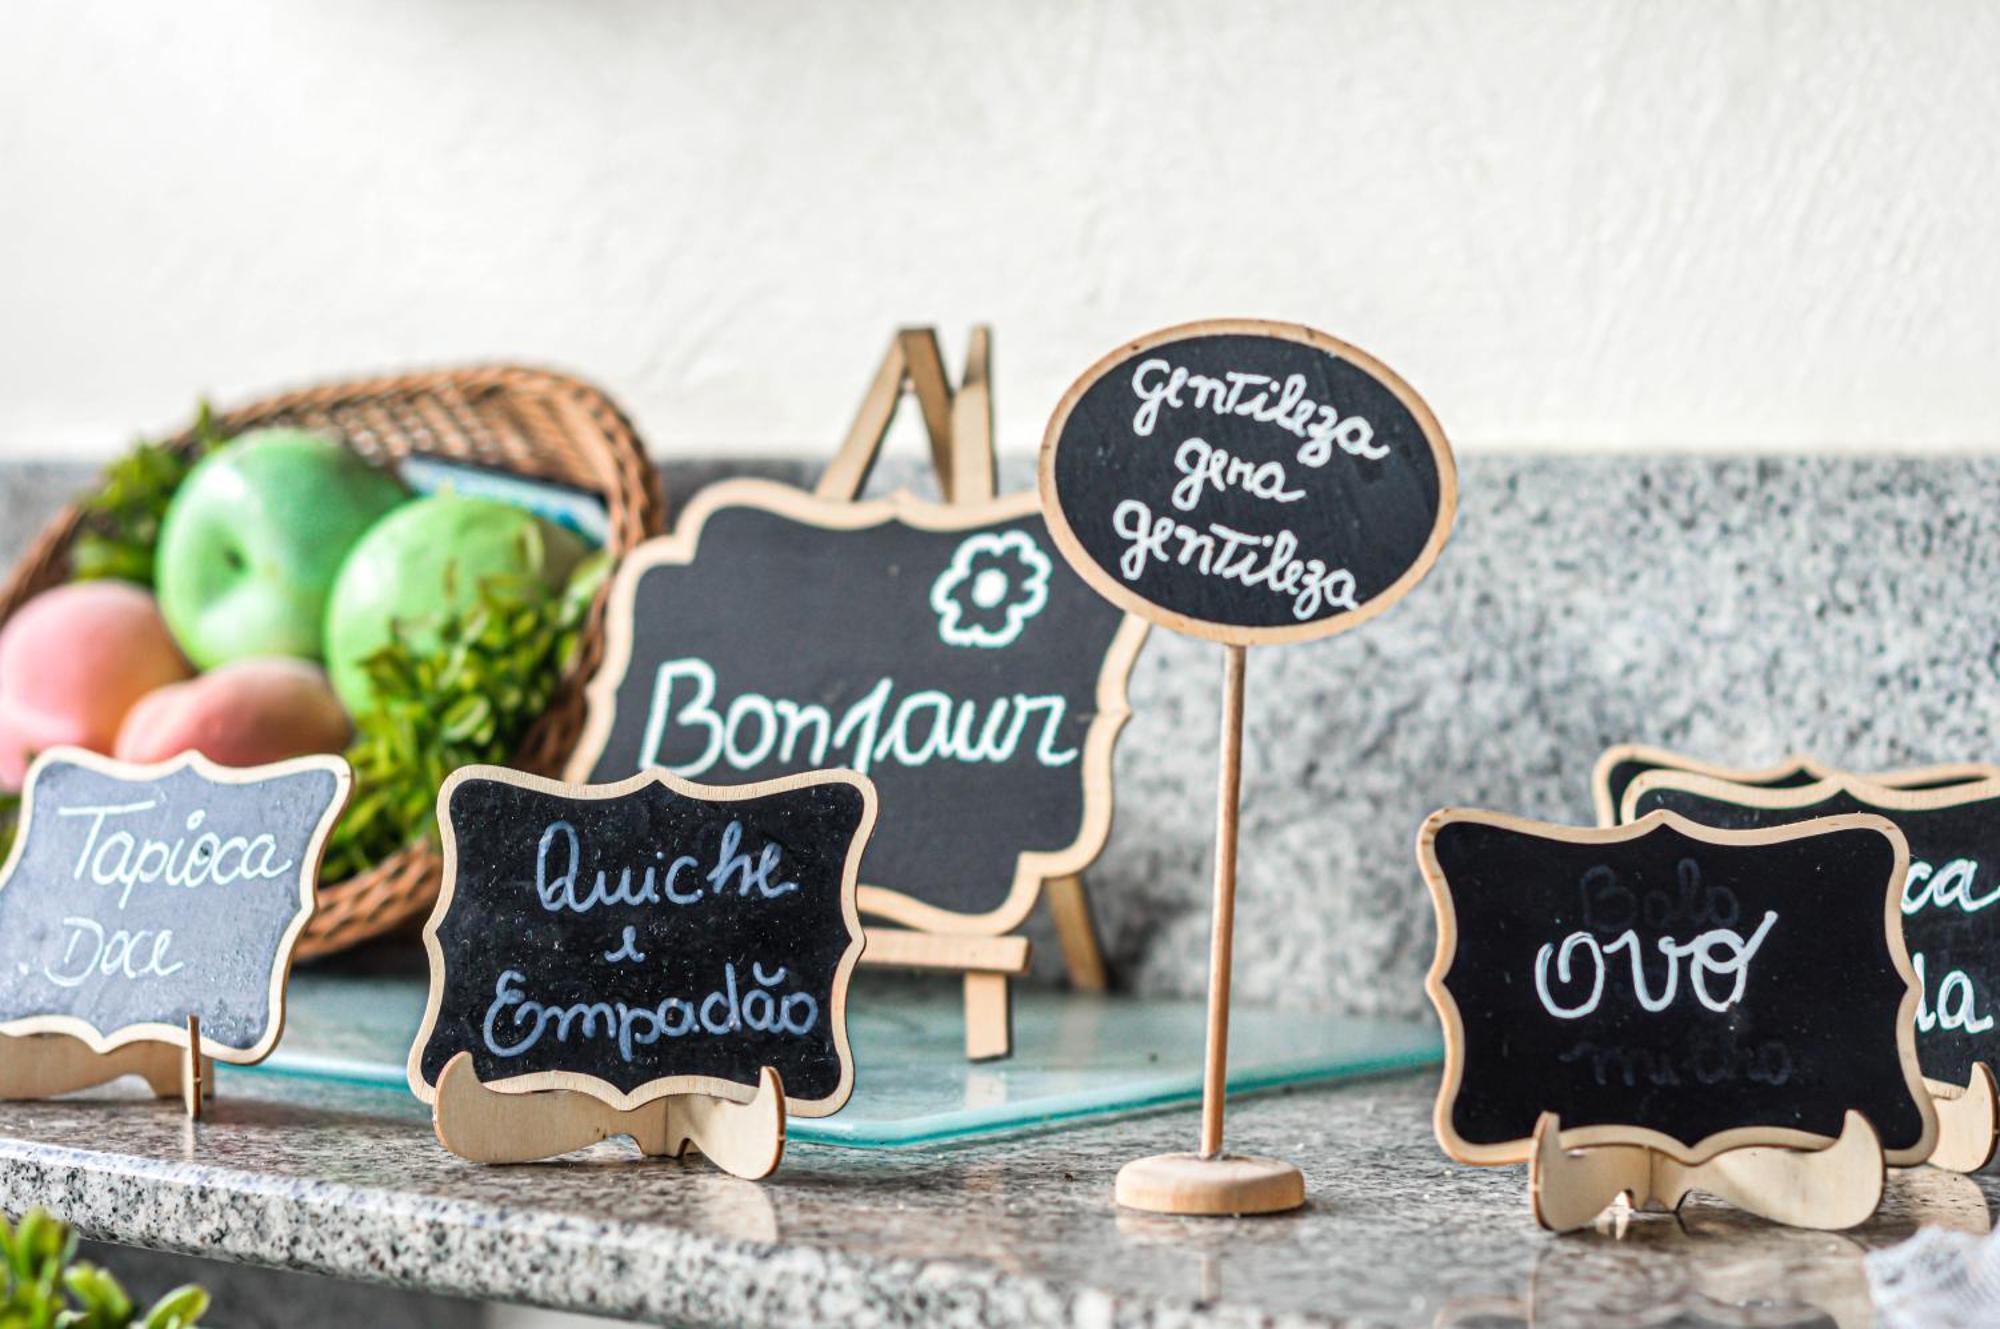 gentileza
gera
gentileza
Bonjour
Tapioca
Doce
Quiche
e
Empadão
Bolo
ovo
milho
ca
la